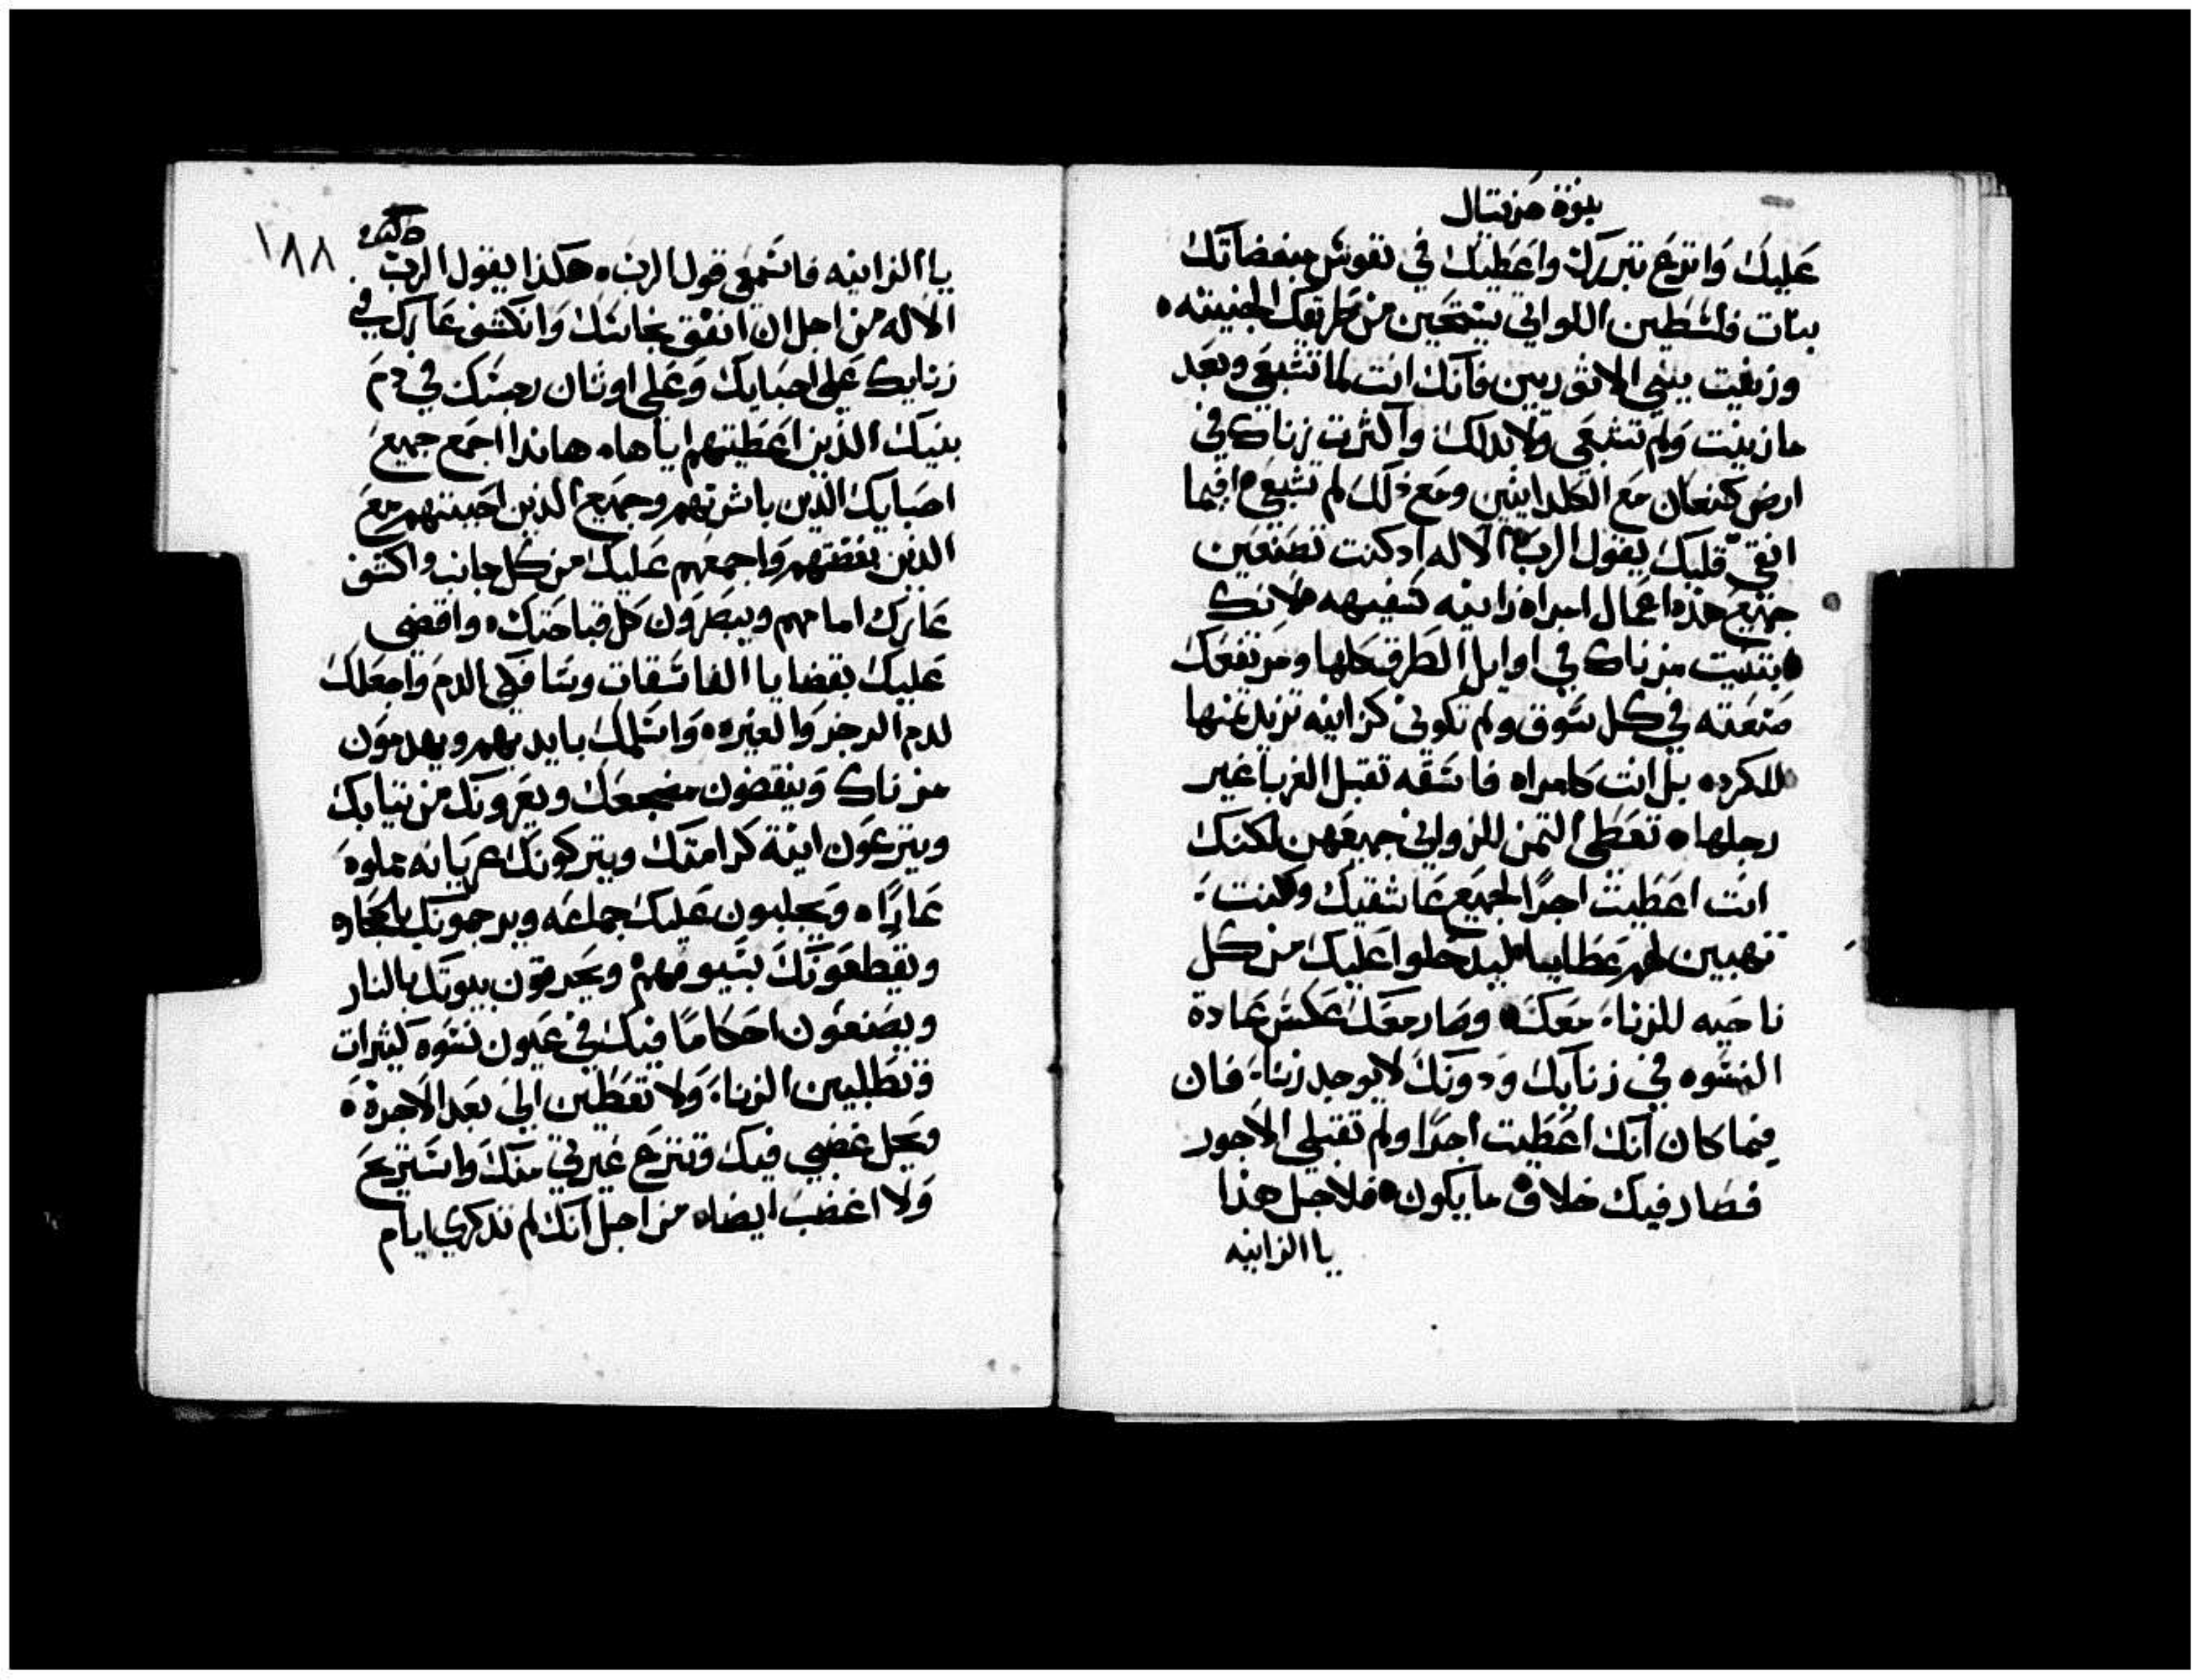 نبوة حزقيال
عليك وانزع تبررك واعطيك في نفوس مبغضاتك
بنات فلسطين اللواتي يستحين من طريقك الخبيثه ه
وزنيت ببني الاثوريين فانك انت لما تشبعي وبعد
ما زنيت ولم تشبعي ولا بذلك واكثرت زناك في
ارض كنعان مع الكلدانيين ومع ذلك لم تشبعي ه افيما
انقي قلبك يقول الرب الاله اذ كنت تصنعين
جميع هذه اعمال امراه زانيه سفيهه ه لانك
ابتنيت مزناك في اوايل الطرق كلها ومرتفعك
صنعته في كل سوق ولم تكوني كزانيه تزيد ثمنها
للكره ه بل انت كامراه فاسقه تقبل الغربا غير
رجلها ه تعطى الثمن للزواني جميعهن لكنك
انت اعطيت اجرًا لجميع عاشقيك وكنت
تهبين لهم عطايا ليدخلوا عليك من كل
ناحيه للزناء معك ه وصار معك عكس عادة
النسوه في زنايك ودونك لا يوجد زناء فان
فيما كان انك اعطيت اجرًا ولم تقبلي الاجور
فصار فيك خلاف ما يكون ه فلاجل هذا
يا الزانيه
١٨٨
يا الزانيه فاسمعي قول الرب ه هكذا يقول الرب
الاله من اجل ان انفق نحاسك وانكشف عارك في
زنايك على احبايك وعلى اوثان رجسك في دم
بنيك الذين اعطيتهم اياها ه هانذا اجمع جميع
احبايك الذين باشرتهم وجميع الذين احببتهم مع
الذين بغضتهم واجمعهم عليك من كل جانب واكشف
عارك امامهم وينظرون كل قباحتك ه واقضي
عليك بقضايا الفاسقات وسافكي الدم واجعلك
لدم الرجز والغيره ه واسلمك بايديهم ويهدمون
مزناك وينقضون مضجعك ويعرونك من ثيابك
وينزعون انية كرامتك ويتركونك عريانه مملوه
عارًا ه ويجلبون عليك جماعه ويرجمونك بالحجاره
ويقطعونك بسيوفهم ويحرقون بيوتك بالنار
ويصنعون احكامًا فيك في عيون نسوه كثيرات
وتبطلين الزناء ولا تعطين ايى بعد الاجرة ه
ويحل غضبي فيك وتنزع غيرتي منك واستريح
ولا اغضب ايضاه من اجل انك لم تذكري ايام